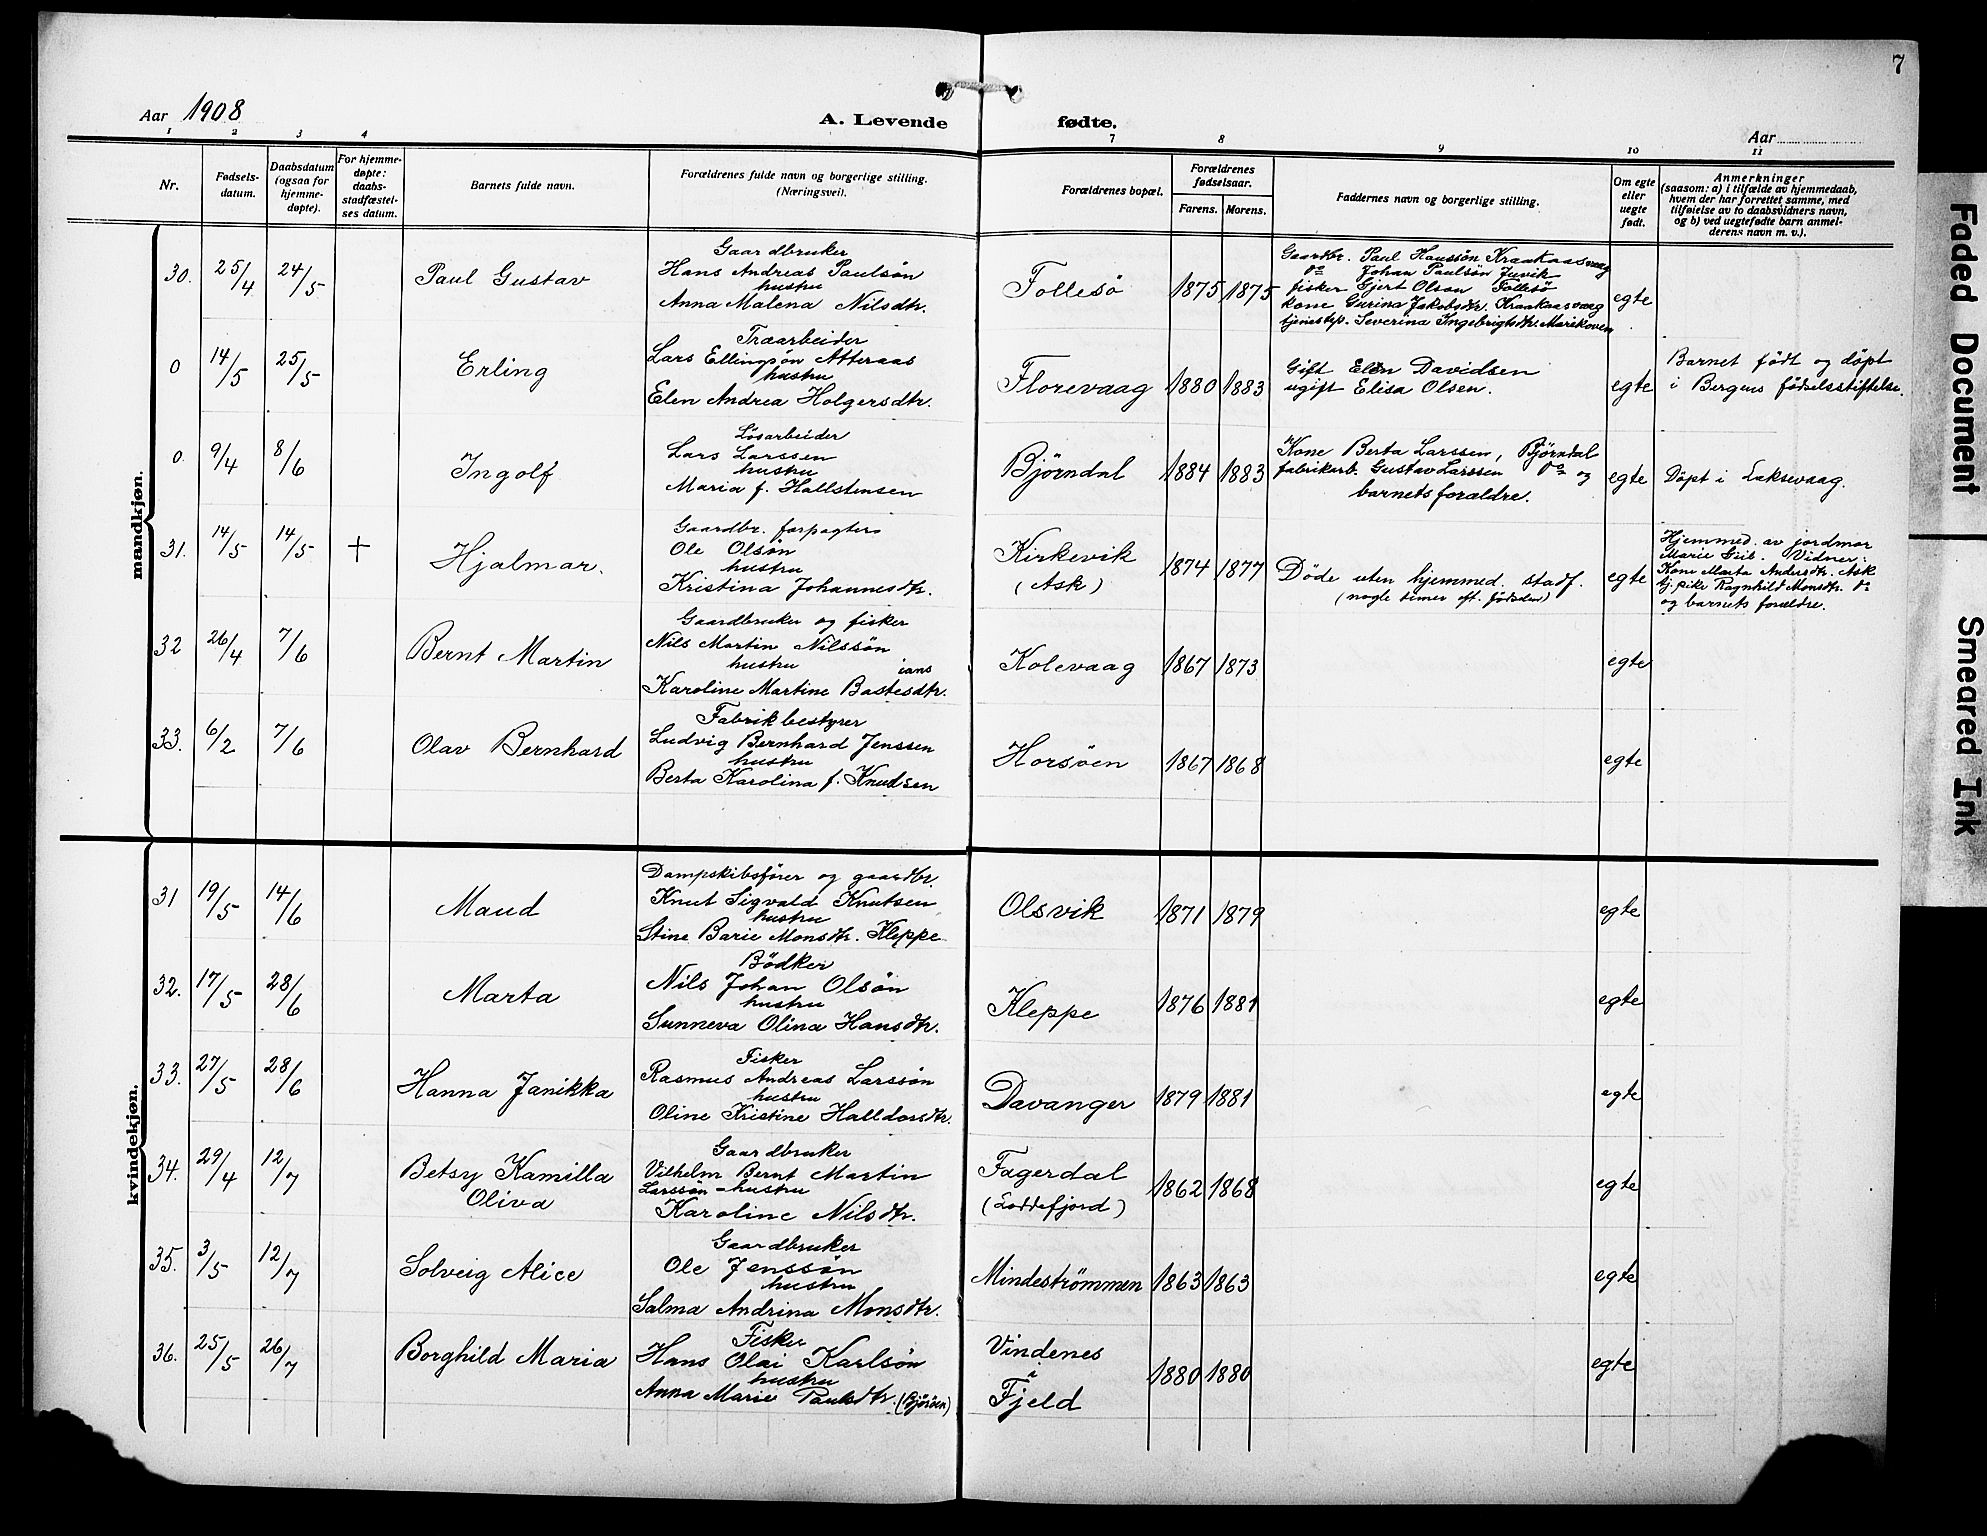 7
Aar 1908
A. Levende fødte.
Aar
1 2 3 4 7 8 9 10 11
Nr.
Fødsels-
datum.
Daabsdatum
(ogsaa for
hjemme-
døpte).
For hjemme-
døpte:
daabs-
stadfæstel-
ses datum.
Barnets fulde navn.
Forældrenes fulde navn og borgerlige stilling.
(Næringsvei).
Forældrenes bopæl.
Forældrenes
fødselsaar.
Farens. Morens.
Faddernes navn og borgerlige stilling.
Om egte
eller
uegte
født.
Anmerkninger
(saasom: a) i tilfælde av hjemmedaab,
hvem der har forrettet samme, med
tilføielse av to daabsvidners navn,
og b) ved uegtefødte barn anmel-
derens navn m. v.).
mandkjøn.
30. 25/4 24/5 Paul Gustav
Gaardbruker
Hans Andreas Paulsøn
hustru
Anna Malena Nilsdtr.
Follesø 1875 1875
Gaardbr. Paul Hanssøn Kraakaasvaag
do Johan Paulsøn Juvik
fisker Gjert Olson Follesø
kone Gurina Jakobsdtr. Kraakaasvaag
tjenestep. Severina Ingebrigtsdtr. Marikoven
egte
0 14/5 25/5 Erling
Træarbeider
Lars Ellingsøn Atteraas
hustru
Elen Andrea Holgersdtr.
Florevaag 1880 1883
Gift Elen Davidsen
ugift Elisa Olsen.
egte
Barnet født og døpt
i Bergens fødselsstiftelse.
0. 9/4 8/6 Ingolf
Løsarbeider
Lars Larssen
hustru
Maria f. Hallstensen
Bjørndal 1884 1883
Kone Berta Larssen, Bjørndal
fabrikarb. Gustav Larssen do og
barnets forældre.
egte
Døpt i Laksevaag.
31. 14/5 14/5 + Hjalmar.
Gaardbr. forpagter
Ole Olsøn
hustru
Kristina Johannesdtr.
Kirkevik
(Ask)
1874 1877
Døde uten hjemmed. stadf.
(nogle timer eft. fødselen)
egte
Hjemmed. av jordmor
Marie Grib. Vidner:
Kone Marta Andersdtr. Ask
tj. pike Ragnhild Monsdtr. do
og barnets forældre.
32 26/4 7/6 Bernt Martin
Gaardbruker og fisker
Nils Martin Nilssøn
hustru
ians
Karoline Martine Bastesdtr.
Kolevaag 1867 1873 egte
33. 6/2 7/6 Olav Bernhard
Fabrikbestyrer
Ludvig Bernhard Jenssen
hustru
Berta Karolina f. Knudsen
Horsøen 1867 1868 egte
kvindekjøn.
31 19/5 14/6 Maud
Dampskibsfører og gaardbr.
Knut Sigvald Knutsen
hustru
Stine Barie Monsdtr. Kleppe
Olsvik 1871 1879 egte
32. 17/5 28/6 Marta
Bødker
Nils Johan Olsøn
hustru
Sunneva Olina Hansdtr.
Kleppe 1876 1881 egte
33. 27/5 28/6 Hanna Janikka
Fisker
Rasmus Andreas Larssøn
hustru
Oline Kristine Halldorsdtr.
Davanger 1879 1881 egte
34. 29/4 12/7 Betsy Kamilla
Oliva
Gaardbruker
Vilhelm Bernt Martin
Larssøn - hustru
Karoline Nilsdtr.
Fagerdal
(Loddefjord)
1862 1868 egte
35. 3/5 12/7 Solveig Alice
Gaardbruker
Ole Jenssøn
hustru
Salma Andrina Monsdtr.
Mindestrømmen 1863 1863 egte
36. 25/5 26/7 Borghild Maria
Fisker
Hans Olai Karlsøn
hustru
Anna Marie Paulsdtr. (Bjørøen)
Vindenes
å
Fjeld
1880 1880 egte
Faded Document
Smeared Ink